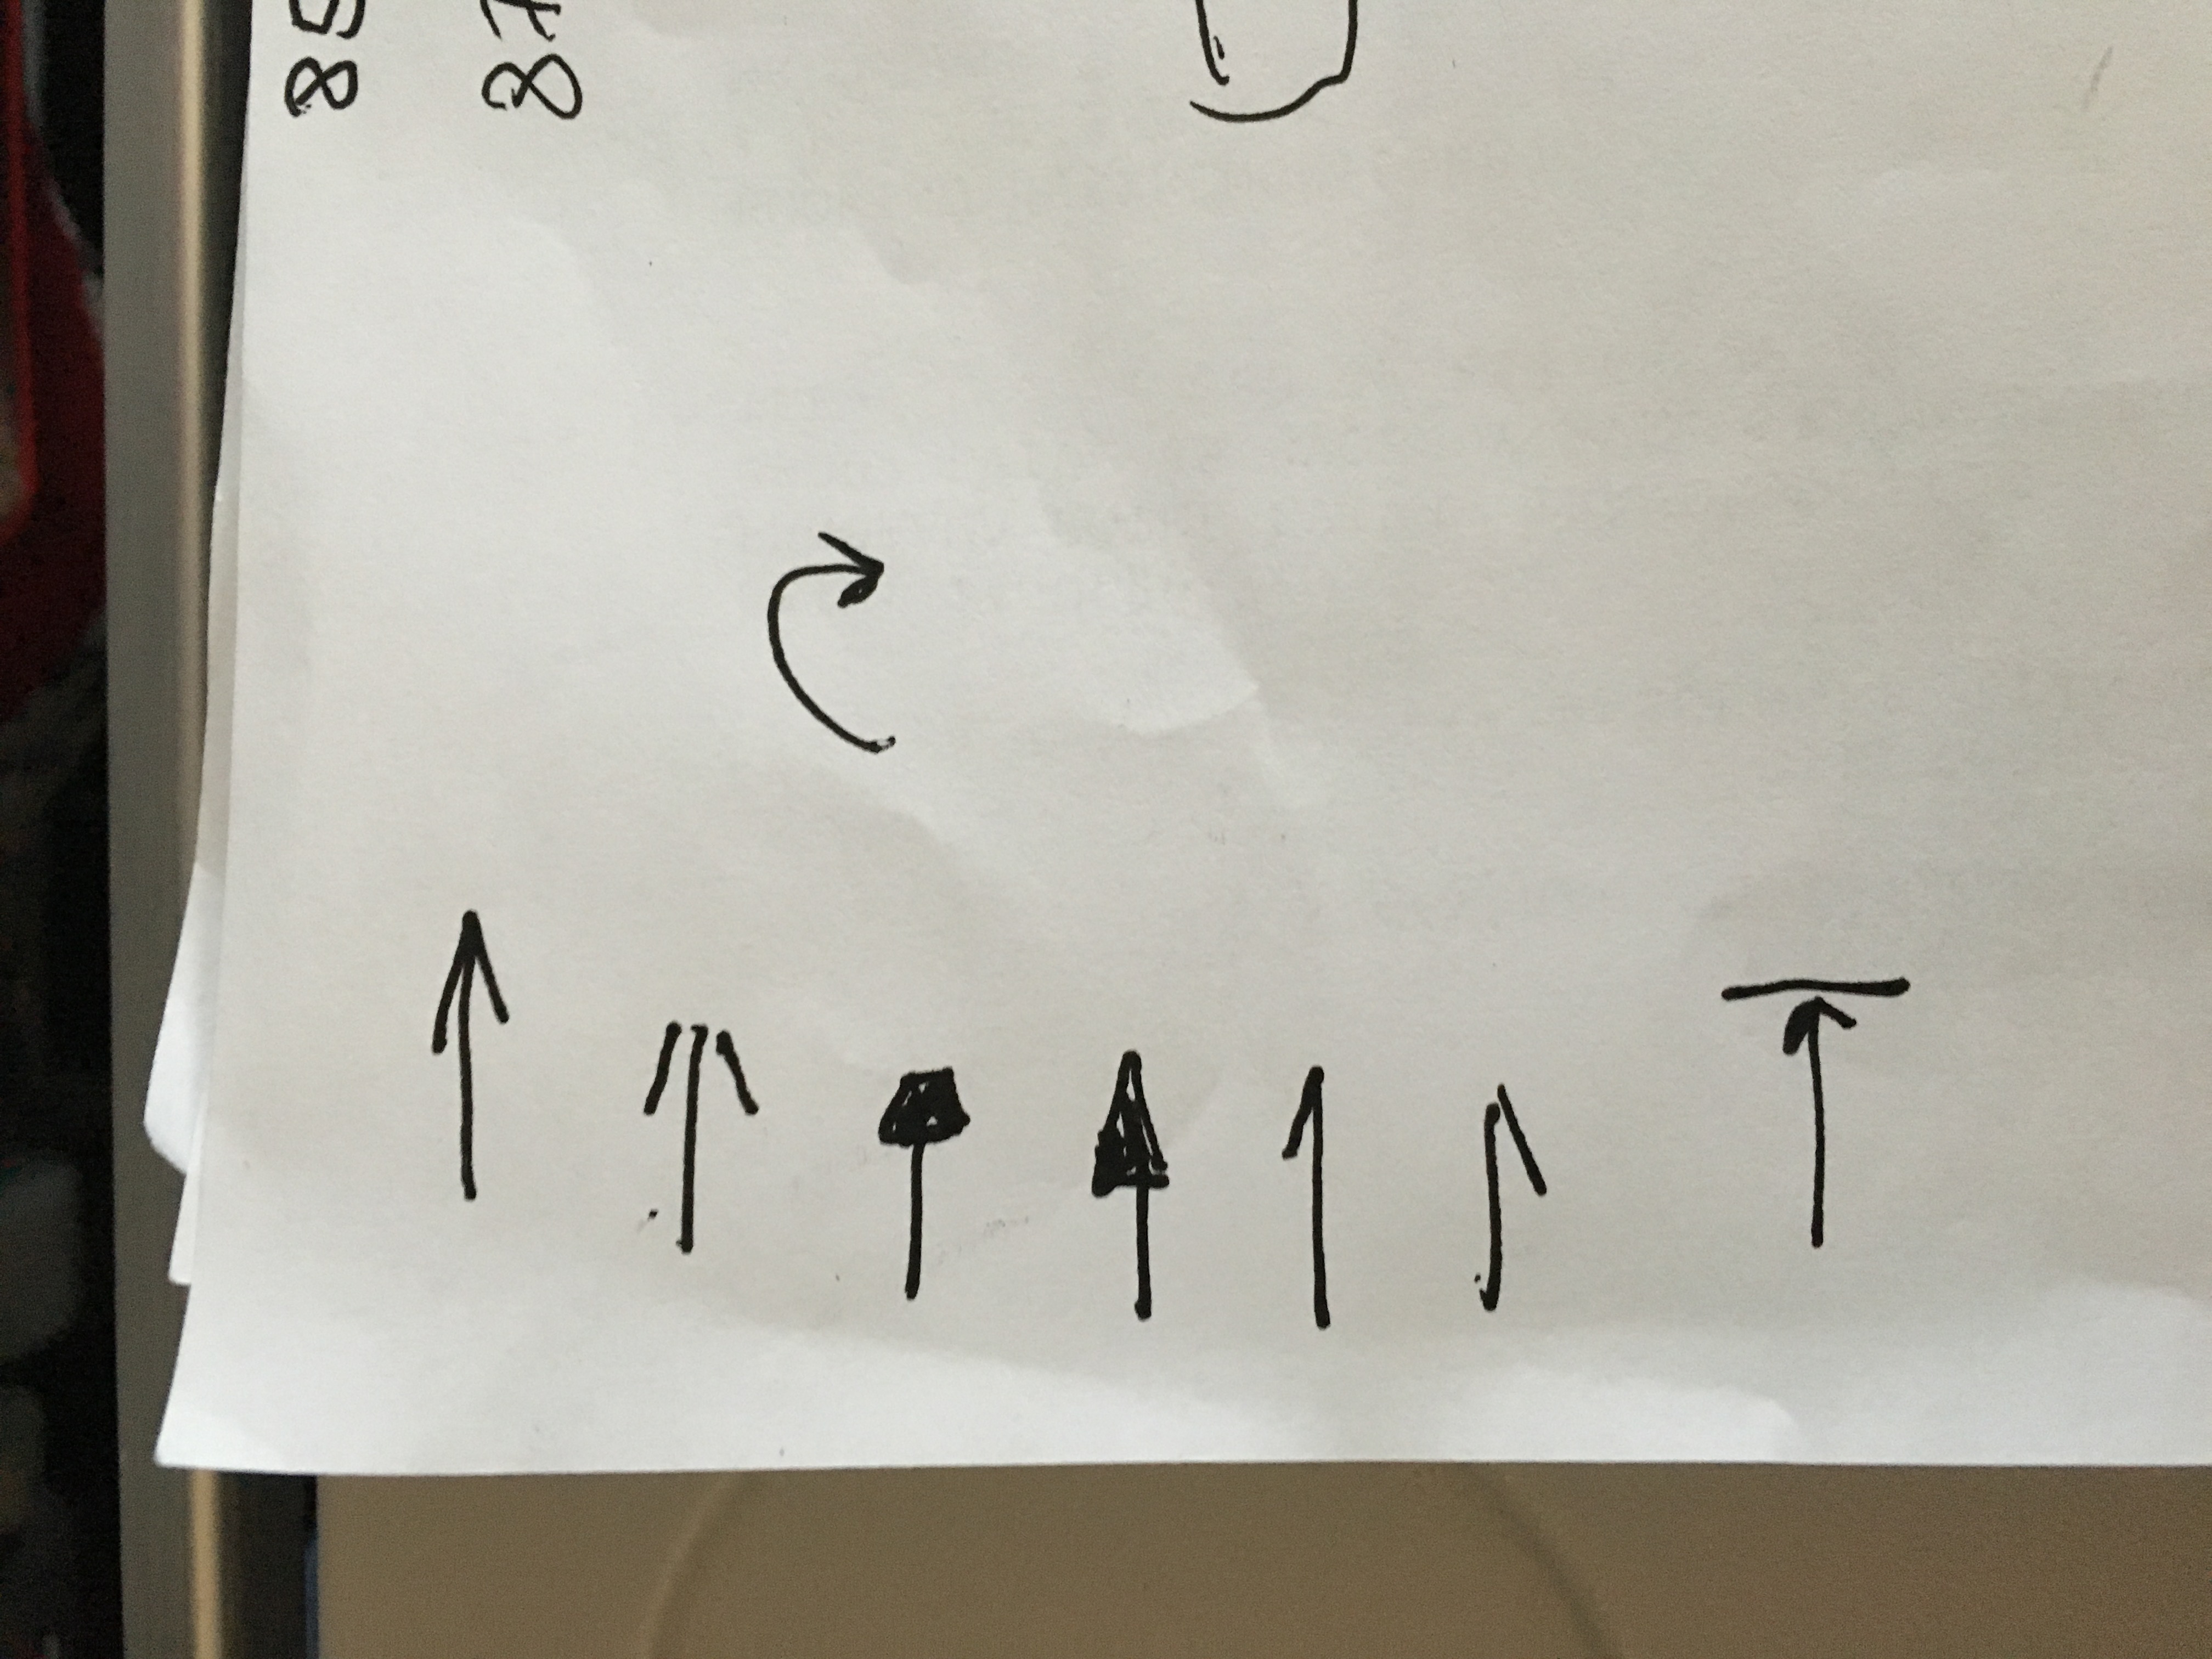 85
87